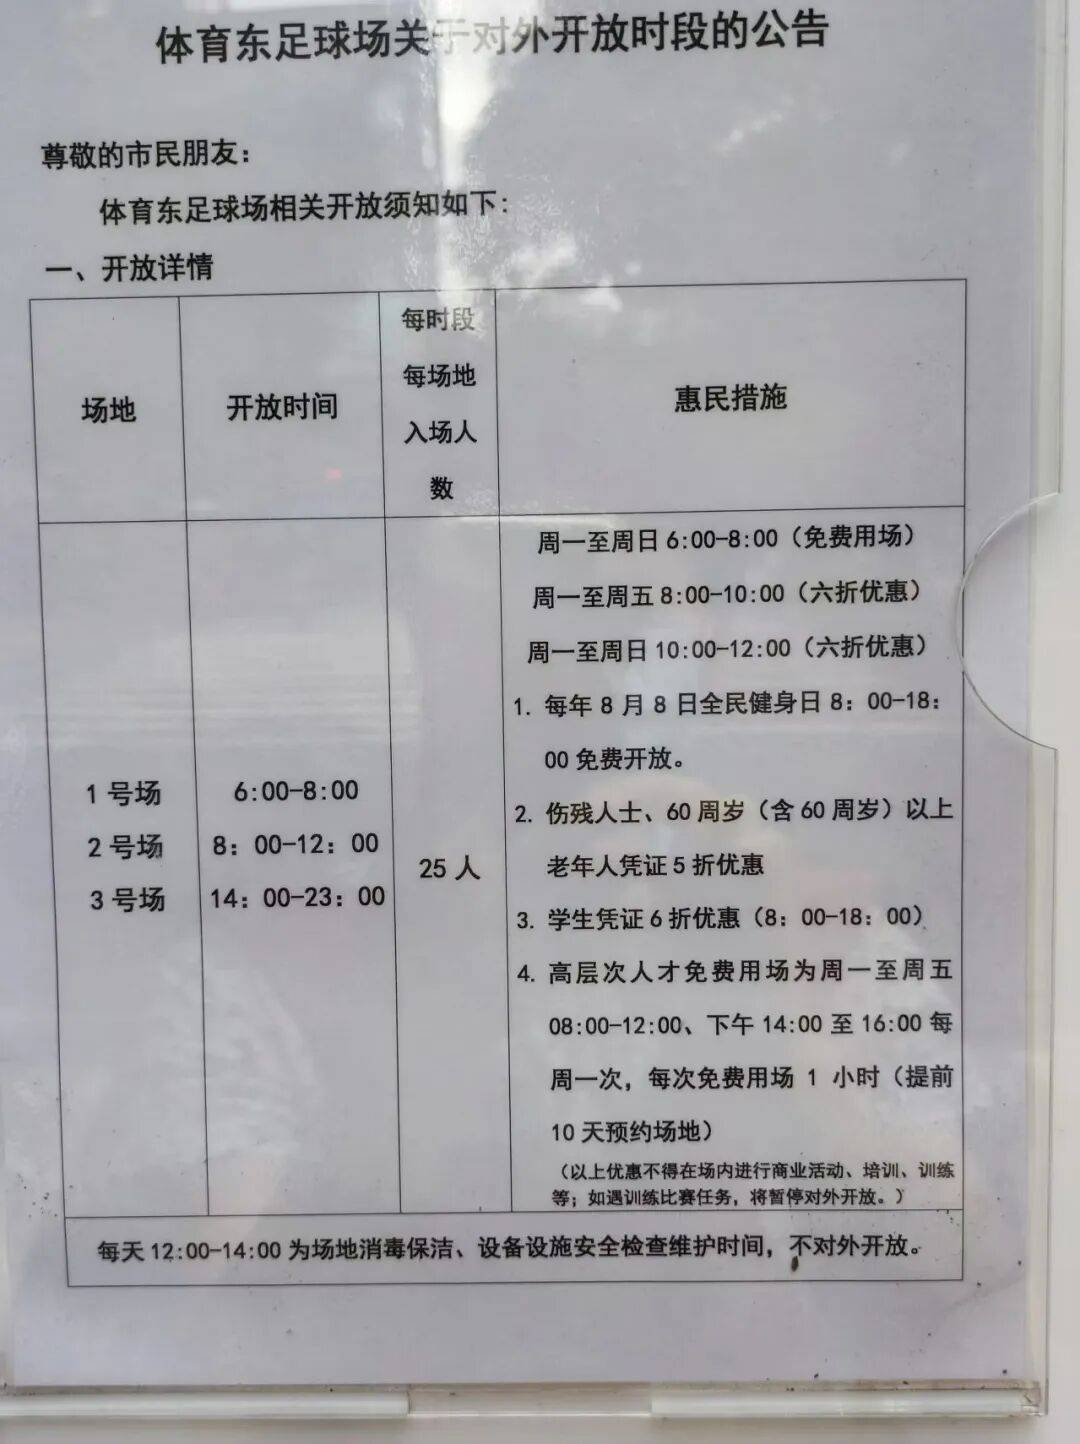 体育东足球场关于对外开放时段的公告
尊敬的市民朋友：
体育东足球场相关开放须知如下：
一、开放详情
场地
开放时间
每时段
每场地
入场人
数
惠民措施
1号场
2号场
3号场
6:00-8:00
8：00-12：00
14：00-23：00
25人
周一至周日6:00-8:00（免费用场）
周一至周五8:00-10:00（六折优惠）
周一至周日10:00-12:00（六折优惠）
1. 每年8月8日全民健身日8：00-18：
00免费开放。
2. 伤残人士、60周岁（含60周岁）以上
老年人凭证5折优惠
3. 学生凭证6折优惠（8：00-18：00）
4. 高层次人才免费用场为周一至周五
08:00-12:00、下午14:00至16:00每
周一次，每次免费用场1小时（提前
10天预约场地）
（以上优惠不得在场内进行商业活动、培训、训练
等；如遇训练比赛任务，将暂停对外开放。）
每天12:00-14:00为场地消毒保洁、设备设施安全检查维护时间，不对外开放。